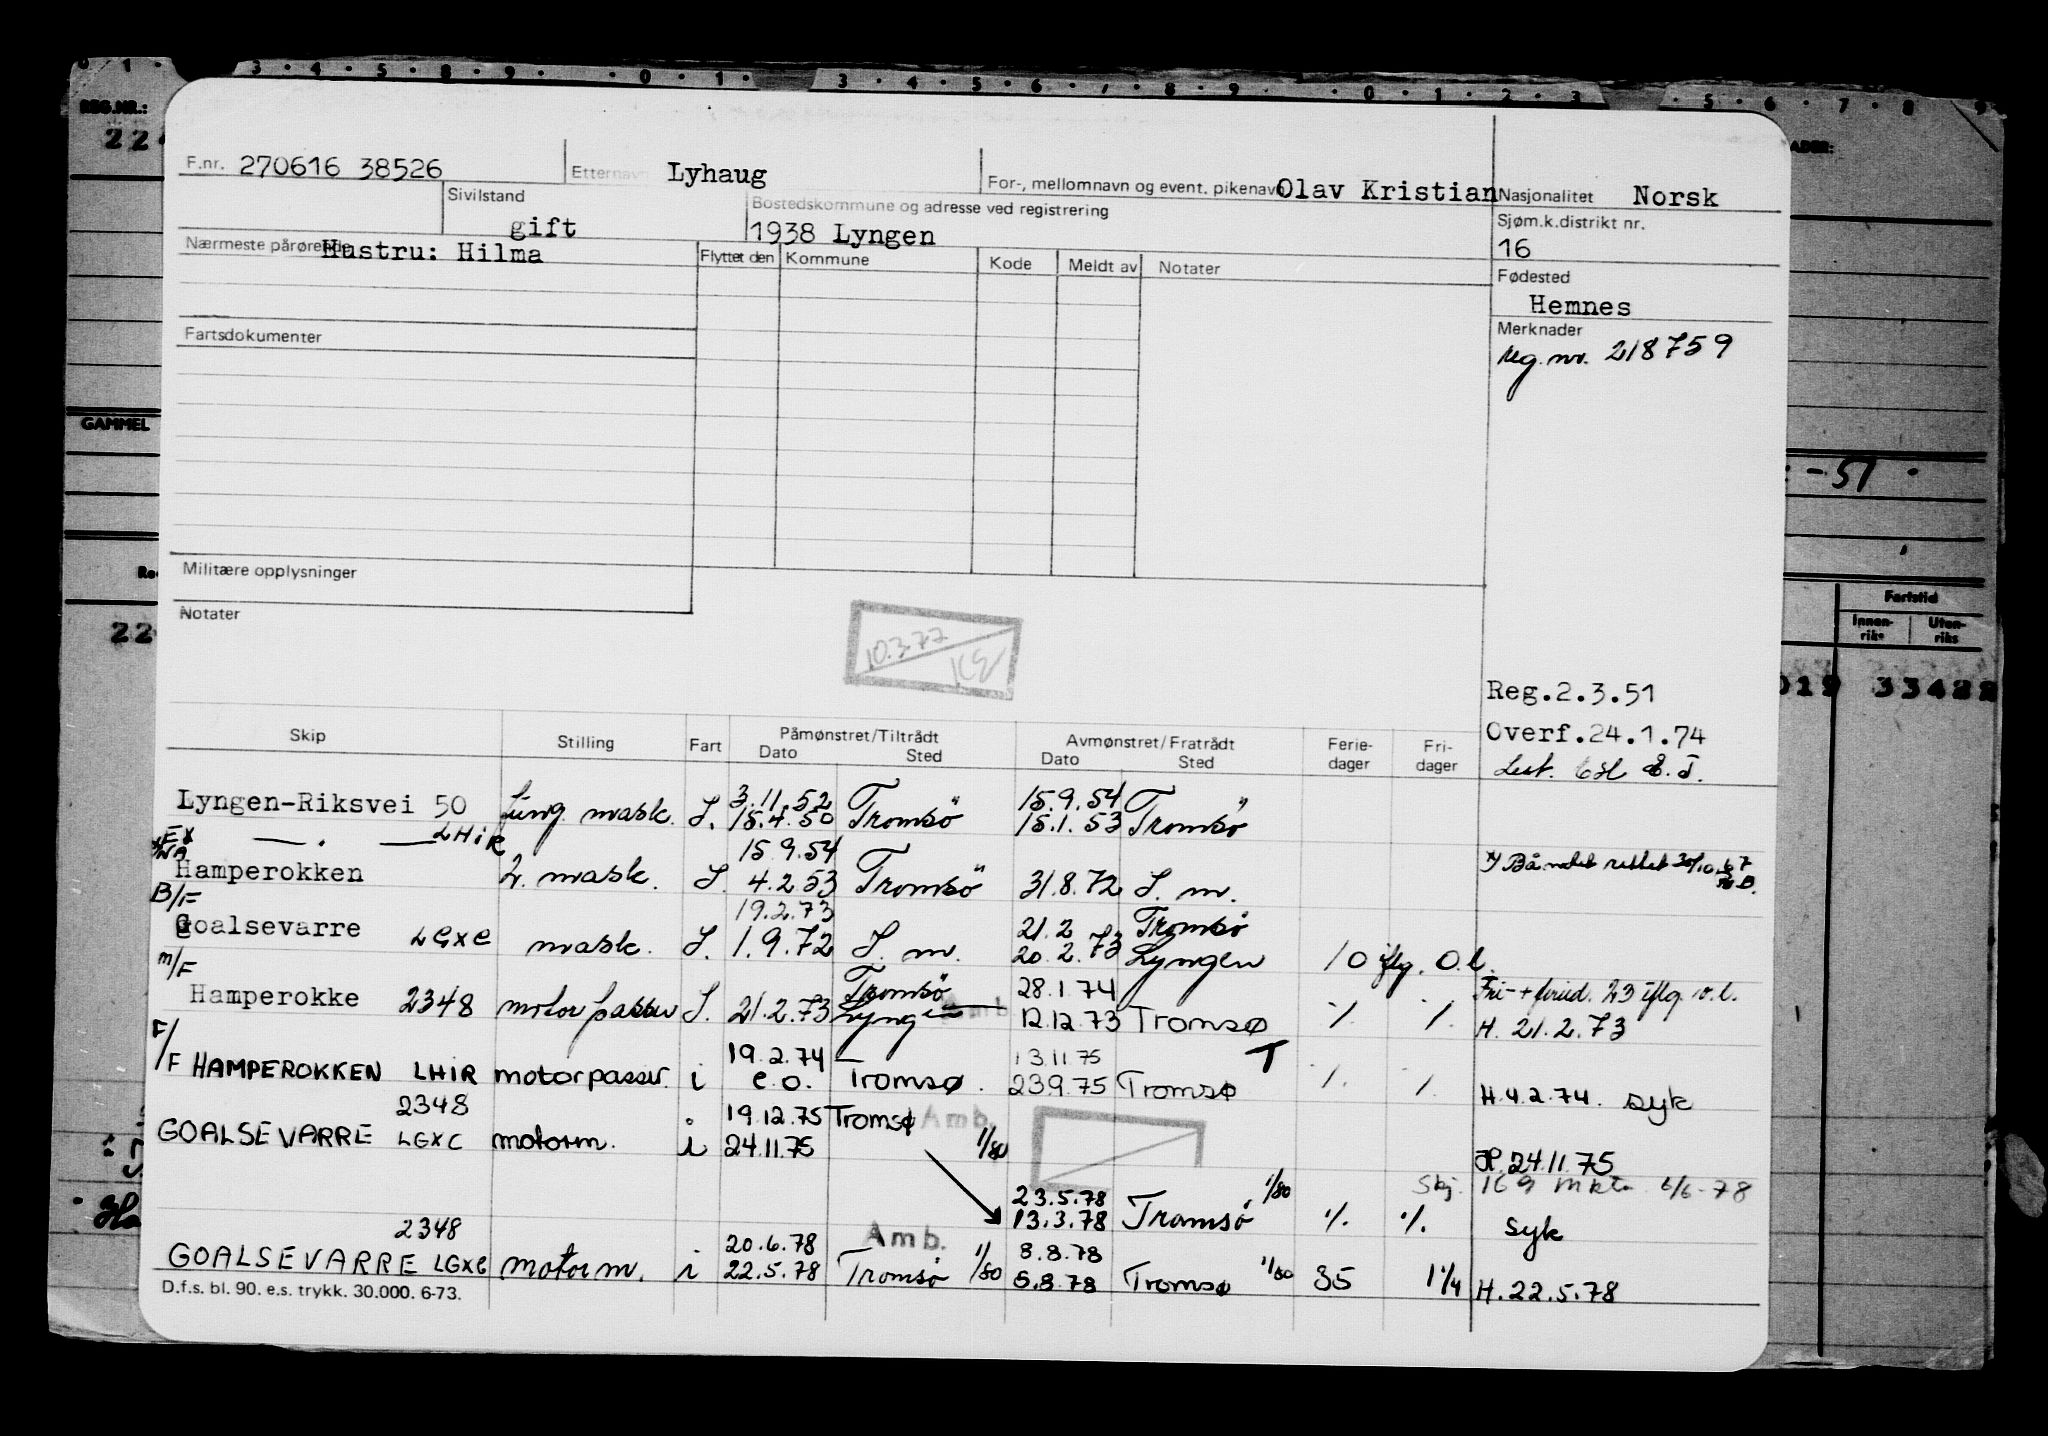 0 1 · 3 · 4 · 5 · 8 · 9 · 0 · 1 · 3 · 4 · 5 · 6 · 7 · 8 · 9 · 0 · 1 · 2 · 3 · 5 · 6 · 7 · 8 9
REG.NR.:
22
F.nr. 270616 38526 Etternavn Lyhaug For-, mellomnavn og event. pikenavn Olav Kristian Nasjonalitet Norsk
Sivilstand gift Bostedskommune og adresse ved registrering 1938 Lyngen Sjøm.k.distrikt nr. 16
Nærmeste pårørende Hustru: Hilma Flyttet den Kommune Kode Meldt av Notater
Fødested Hemnes
Merknader
reg. nr. 218759
Fartsdokumenter
GAMMEL
-51
Militære opplysninger
Notater
10.3.77
KE
22
Fartstid
Innen-riks Uten-riks
019 33422
Reg.2.3.51
Overf.24.1.74
Skip Stilling Fart Påmønstret/Tiltrådt Dato Sted Avmønstret/Fratrådt Dato Sted Ferie-dager Fri-dager
3.11.52 15.9.54
Lyngen-Riksvei 50 mask. 15.4.50 Tromsö 15.1.53 Tromsö
LHIR 15.9.54
Hamperokken 2. mask. 4.2.53 Tromsö 31.8.72 S. m.
B/F 19.2.73 21.2 Tromsö
Goalsevarre LGXC mask. S. 1.9.72 S. m. 20.2.73 Lyngen 10 iflg. O.l.
M/F Tromsö 28.1.74
Hamperokke 2348 motorpasser S. 21.2.73 Lyngen 12.12.73 Tromsø % % H. 21.2.73
F/F 19.2.74 13.11.75 T
HAMPEROKKEN LHIR motorpasser. i e.o. Tromsø. 23.9.75 Tromsø % % H.4.2.74. syk
2348 19.12.75 Tromsø Amb.
GOALSEVARRE LGXC motorm. i 24.11.75 1/80 H. 24.11.75
Skj. 169 mkt. 6/6-78
23.5.78 1/80
13.3.78 Tromsö % % syk
2348 20.6.78 Amb. 8.8.78
GOALSEVARRE LGXC motorm. i 22.5.78 Tromsö 1/80 5.8.78 Tromsø 1/80 35 1 1/4 H.22.5.78
D.f.s. bl. 90. e.s. trykk. 30.000. 6-73.